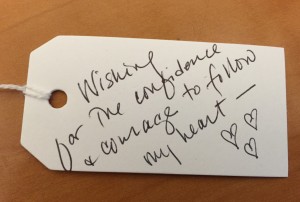 Wishing
for The confidence
& courage to follow
my heart —